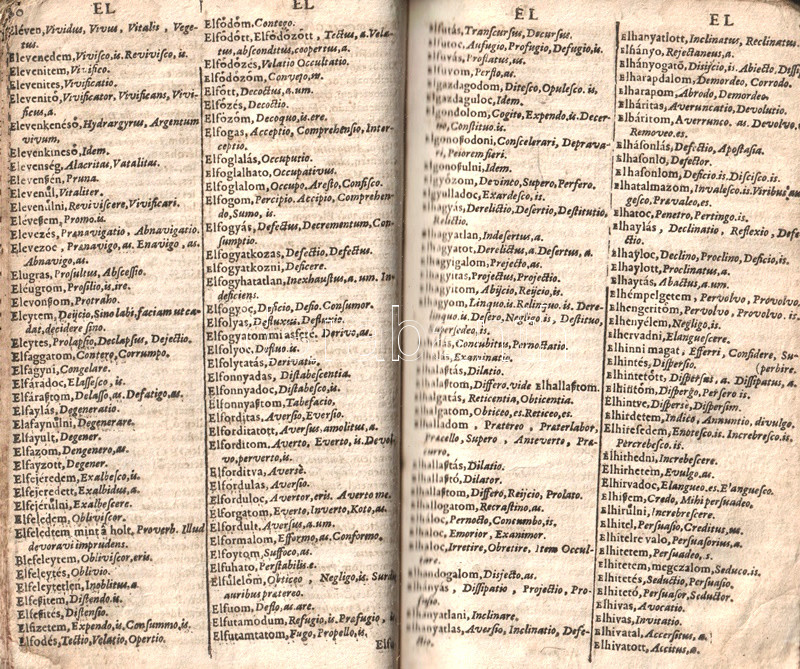 EL
Eléven, Vividus, Vivus, Vitalis, Vege-
tus.
Elevenedem, Vivisco, is. Revivisco, is.
Elevenitem, Vivifico.
Elevenites, Vivificatio.
Elevenitő, Vivificator, Vivificans, Vivi-
ficus, a.
Elevenkenéső, Hydrargyrus, Argentum
vivum.
Elevenkineső, Idem.
Elevenség, Alacritas, Vatalitas.
Elevenßén, Pruna.
Elevenűl, Vitaliter.
Elevenűlni, Reviviscere, Vivificari.
Eléveßem, Promo. is.
Elevezés, Pranavigatio, Abnavigatio.
Elevezoc, Pranavigo, as. Enavigo, as.
Abnavigo, as.
Elugras, Prosultus, Abscessio.
Eléugrom, Prosilio, is, ire.
Elevonßom, Protraho.
Eleytem, Deijcio, Sino labi, faciam ut ca-
dat, decidere sino.
Eleytes, Prolapsio, Declapsus, Dejectio.
Elfaggatom, Contero, Corrumpo.
Elfagyni, Congelare.
Elfáradoc, Elassesco, is.
Elfáraßtom, Delasso, as. Defatigo, as.
Elfaylás, Degeneratio.
Elafaynűlni, Degenerare.
Elfayult, Degener.
Elfazom, Dengenero, as.
Elfayzott, Degener.
Elfejéredem, Exalbesco, is.
Elfejeredett, Exalbidus, a.
Elfejérűlni, Exalbescere.
Elfeledem, Obliviscor.
Elfeledtem mint a holt, Proverb. Illud
devoravi imprudens.
Elefeleytem, Obliviscor, eris.
Elfeleytés, Oblivio.
Elfeleytetlen, Inoblitus, a.
Elfeßitem, Distendo, is.
Elfeßités, Distensio.
Elfizetem, Expendo, is. Consummo, is.
Elfodés, Tectio, Velatio, Opertio.
EL
Elfődőm, Contego.
Elfődőtt, Elfődőzőtt, Tectus, a. Vela-
tus, absconditus, coopertus, a.
Elfődőzés, Velatio Occultatio.
Elfődőzőm,
Elfőtt, Decoctus, a. um.
Elfőzés, Decoctio.
Elfőzőm, Decoquo, is. ere.
Elfogas, Acceptio, Comprehensio, Inter-
ceptio.
Elfoglalás, Occuputio.
Elfoglalhato, Occupativus.
Elfoglalom, Occupo. Aresto, Confisco.
Elfogom, Percipio. Accipio, Comprehen-
do, Sumo, is.
Elfogyás, Defectus, Decrementum, Con-
sumptio.
Elfogyatkozás, Defectio, Defectus.
Elfogyatkozni, Deficere.
Elfogyhatatlan, Inexhaustus, a. um. In-
deficiens.
Elfogyoc, Deficio, Defio. Consumor.
Elfolyas, Defluxus. Defluxio.
Elfogyatommi asféte. Derivo, as.
Elfolyoc, Defluo. is.
Elfolytatás, Derivatio.
Elfonnyadas, Distabescentia.
Elfonnyadoc, Distabesco, is.
Elfonnyaßtom, Tabefacio,
Elforditas, Aversio, Eversio.
Elforditatott, Aversus. amolitus, a.
Elforditom, Averto, Everto, is. Devol-
vo, perverto, is.
Elforditva, Aversè.
Elfordulas, Aversio.
Elforduloc, Avertor, eris. Averto me.
Elforgatom, Everto, Inverto, Roto, as.
Elfordult, Aversus, a. um.
Elformalom, Efformo, as. Conformo.
Elfoytom, Suffoco, as.
Elfuhato, Perflabilis.
Elfűlelőm, Obticeo, Negligo, is. Surdis
auribus pratereo.
Elfutom, Deflo, as. are.
Elfutamodum, Refugio, is. Profugio, is
Elfutamtatom, Fugo, Propello, is.
Elfo
EL
Elfutás, Transcursus, Decursus.
Elfutoc, Aufugio, Profugio, Defugio, is.
Elfuvás, Proflatus, us.
Elfuvom, Perflo, as.
Elgazdagodom, Ditesco, Opulesco. is.
Elgazdaguloc, Idem.
Elgondolom, Cogito, Expendo, is. Decer-
no, Constituo. is.
Elgonoßodoni, Conscelerari, Deprava-
ri, Peiorem fieri.
Elgonoßulni, Idem.
Elgyőzom, Devinco, Supero, Perfero.
Elgyulladoc, Exardesco, is.
Elhagyás, Derelictio, Desertio, Destitutio,
Relictio.
Elhagyatlan, Indesertus, a.
Elhagyatot, Derelictus, a. Desertus, a.
Elhagyigalom, Prejecto, as.
Elhagyitas, Projectus, Projectio.
Elhagyitom, Abijcio, Reijcio, is.
Elhagyom, Linquo. is. Relinquo. is. Dere-
linquo. is. Desero. Negligo, is, Destituo,
Supersedeo, is.
Elhalás, Concubitus, Pernoctatio.
Elhalás, Examinatio.
Elhalaßtás, Dilatio.
Elhalaßtom, Differo. vide Elhallaßtom.
Elhalgatás, Reticentia, Obticentia.
Elhalgatom, Obticeo, es. Reticeo, es.
Elhalladom, Pratereo, Praterlabor,
Precello, Supero, Anteverto, Pra-
curro.
Elhallaßtás, Dilatio.
Elhallaßtó, Dilator.
Elhallaßtom, Differo, Reijcio, Prolato.
Elhallogatom, Recrastino, as.
Elhaloc, Pernocto, Concumbo, is.
Elhaloc, Emorior, Examinor.
Elhaloc, Irretire, Obretire, Item Occul-
tare.
Elhandogalom, Disjecto, as.
Elhanyás, Dissipatio, Projectio, Pro-
fusio.
Elhanyatlani, Inclinare.
Elhanyatlas, Aversio, Inclinatio, Defe-
ctio.
EL
Elhanyatlott, Inclinatus, Reclinatus.
Elhányo, Rejectaneus, a.
Elhányogató, Disijcio, is. Abiecto, Dissi-
Elharapdalom, Demordeo, Corrodo.
Elharapom, Abrodo, Demordeo.
Elháritas, Averuncatio, Devolutio.
Elháritom, Averrunco. as. Devolvo,
Removeo. es.
Elhásonlás, Defectio, Apostasia.
Elhasonlo, Defector.
Elhasonlom, Deficio. is. Discisco. is.
Elhatalmazom, Invalesco. is. Viribus au-
gesco, Prevaleo, es.
Elhatoc, Penetro, Pertingo. is.
Elhaylás, Declinatio, Reflexio, Defe-
ctio.
Elhayloc, Declino, Proclino, Deficio, is.
Elhaylott, Proclinatus, a.
Elhaytás, Abactus, a. um.
Elhémpelgetem, Pervolvo, Provolvo,
Elhengeritőm, Provolvo, Pervolvo. is.
Elhenyélem, Negligo. is.
Elhervadni, Elanguescere.
Elhinni magat, Efferri, Confidere, Su-
(perbire.
Elhintés, Dispersio.
Elhintetőtt, Dispersus, a. Dissipatus, a.
Elhintőm, Dispergo, Perfero is.
Elhintve, Dispersè, Dispersim.
Elhirdetem, Indico, Annuntio, divulgo.
Elhiresedem, Enotesco. is. Increbresco. is.
Percrebesco. is.
Elhirhedni, Increbescere.
Elhirhetem, Evulgo. as.
Elhirvadoc, Elangueo. es. Elanguesco.
Elhißem, Credo, Mihi persuadeo.
Elhirűlni, Increbrescere.
Elhitel, Persuasio, Creditus, us.
Elhitelre valo, Persuasorius, a.
Elhitetem, Persuadeo, s.
Elhitetem, megczalom, Seduco. is.
Elhitetés, Seductio, Persuasio.
Elhitető, Persuasor, Seductor.
Elhivas, Avocatio.
Elhivas, Invitatio.
Elhivatal, Accersitus, a.
Elhivatott, Accitus, a.